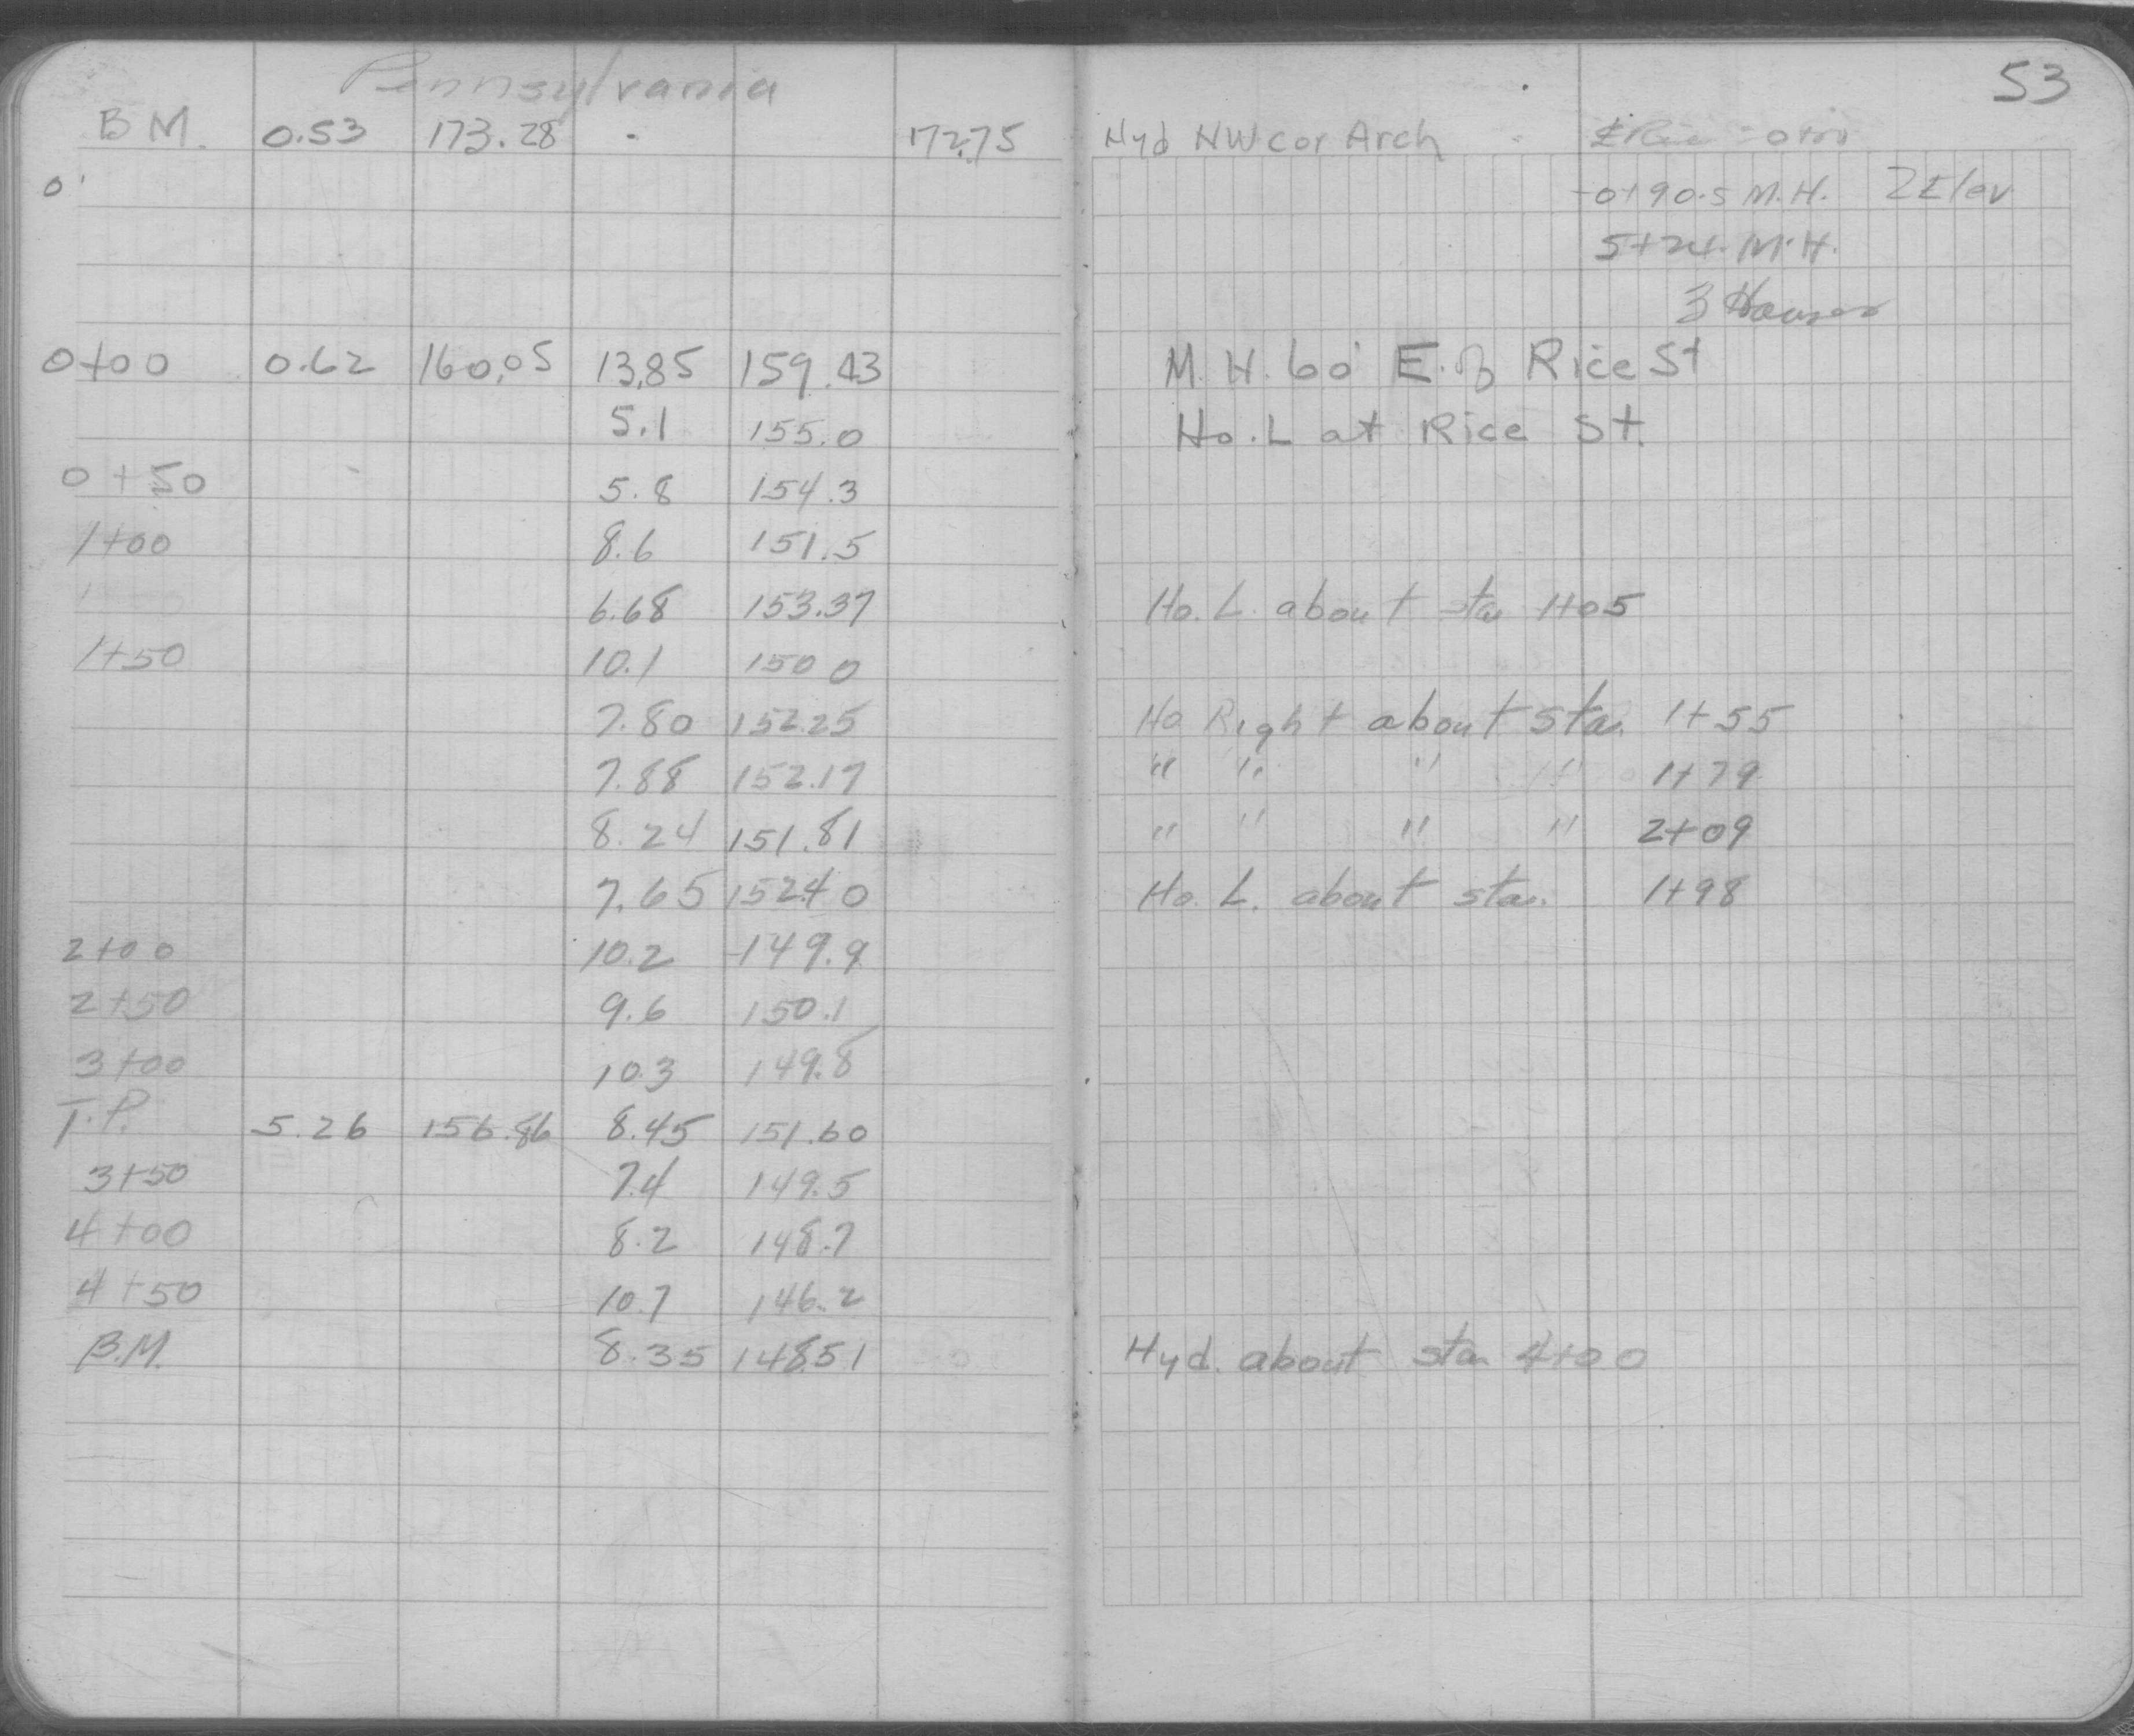 53
Pennsylvania
B M. 0.53 173.28 - 172.75 Hyd NW cor Arch ₵ Rice = 0+00
0' 0+90.5 M.H. 2 Elev
5+24. M.H.
3 Houses
0+00 0.62 160.05 13.85 159.43 M.H. 60' E. of Rice St
5.1 155.0 Ho. L at Rice St.
0+50 5.8 154.3
1+00 8.6 151.5
6.68 153.37 Ho. L. about sta 1+05
1+50 10.1 150 0
7.80 152.25 Ho Right about sta. 1+55
7.88 152.17 " " " " 1+79
8.24 151.81 " " " " 2+09
7.65 152.40 Ho. L. about sta. 1+98
2+00 10.2 149.9
2+50 9.6 150.1
3+00 10.3 149.8
T.P. 5.26 156.86 8.45 151.60
3+50 7.4 149.5
4+00 8.2 148.7
4+50 10.7 146.2
B.M. 8.35 148.51 Hyd. about sta 4+00